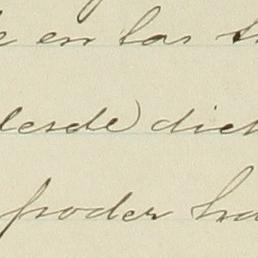 en las
desde dich
poder ha